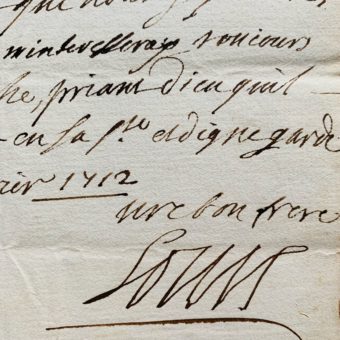 que nous
m'interesseray toujours
he, priant Dieu quil
en sa s.te et digne garde
rier 1712
vre bon frere
Louis